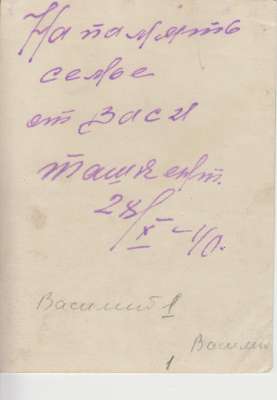 На память
семье
от Васи
Ташкент.
28/X-40.
Василий 1
Васили
1